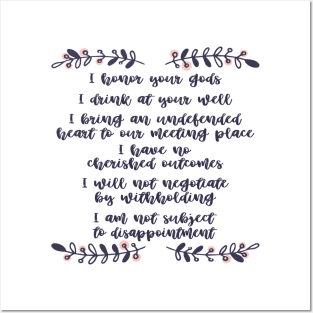 I honor your gods
I drink at your well
I bring an undefended
heart to our meeting place
I have no
cherished outcomes
I will not negotiate
by withholding
I am not subject
to disappointment